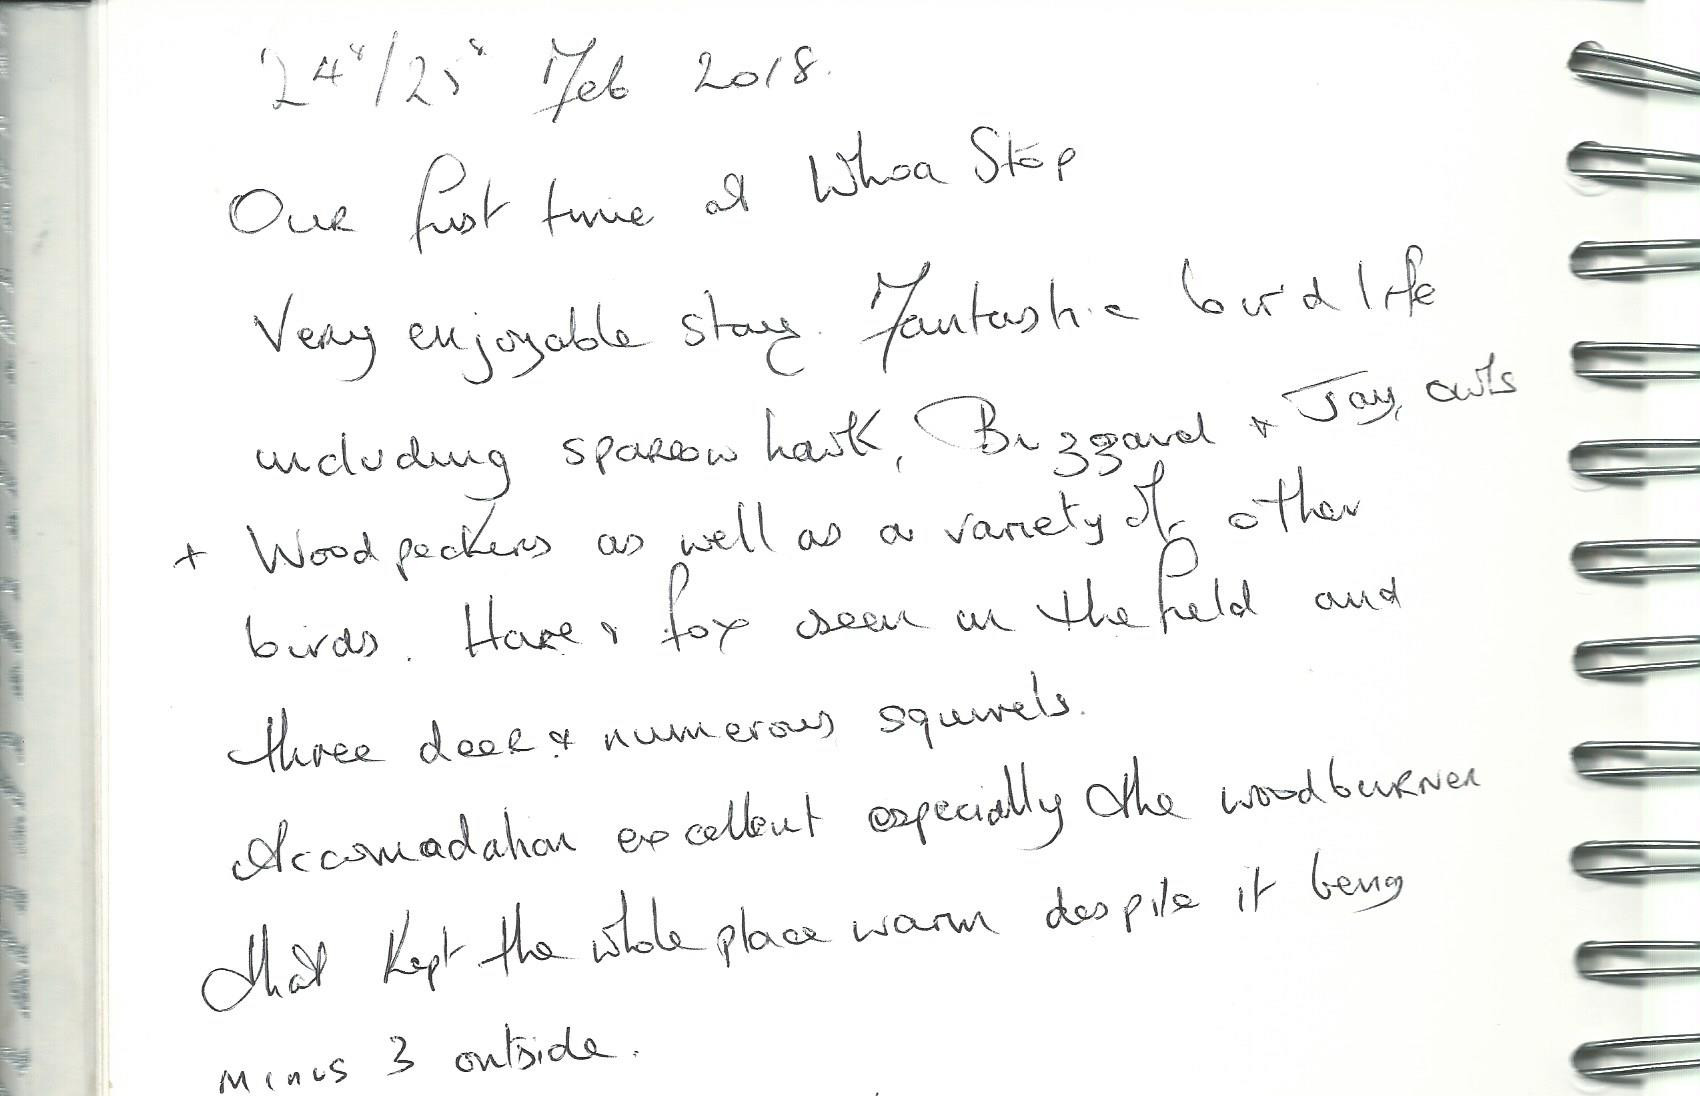 24th/25th Feb 2018.
Our first time at Whoa Stop
Very enjoyable stay. Fantastic bird life
including sparrow hawk, Buzzard + Jay, owls
+ Woodpeckers as well as a variety of other
birds. Hare & fox seen in the field and
three deer & numerous squirrels.
Accomadation excellent especially the woodburner
that kept the whole place warm despite it being
minus 3 outside.